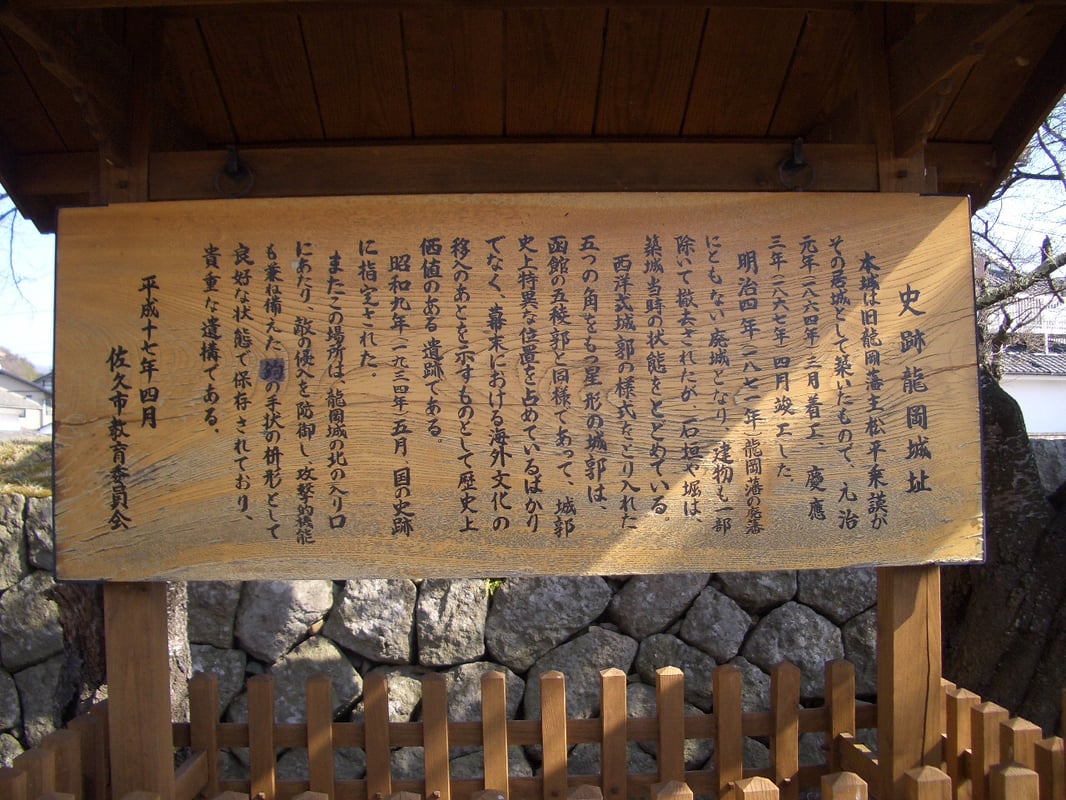 史跡龍岡城址
本城は旧龍岡藩主松平乗謨が
その居城として築いたもので、元治
元年(一八六四年)三月着工、慶應
三年(一八六七年)四月竣工した。
明治四年(一八七一年)龍岡藩の廃藩
にともない廃城となり、建物も一部
除いて撤去されたが、石垣や堀は、
築城当時の状態をとどめている。
西洋式城郭の様式をとり入れた
五つの角をもつ星形の城郭は、
函館の五稜郭と同様であって、城郭
史上特異な位置を占めているばかり
でなく、幕末における海外文化の
移入のあとを示すものとして歴史上
価値のある遺跡である。
昭和九年(一九三四年)五月国の史跡
に指定された。
またこの場所は、龍岡城の北の入り口
にあたり、敵の侵入を防御し、攻撃的機能
も兼ね備えた鈎の手状の枡形として
良好な状態で保存されており、
貴重な遺構である。
平成十七年四月
佐久市教育委員会